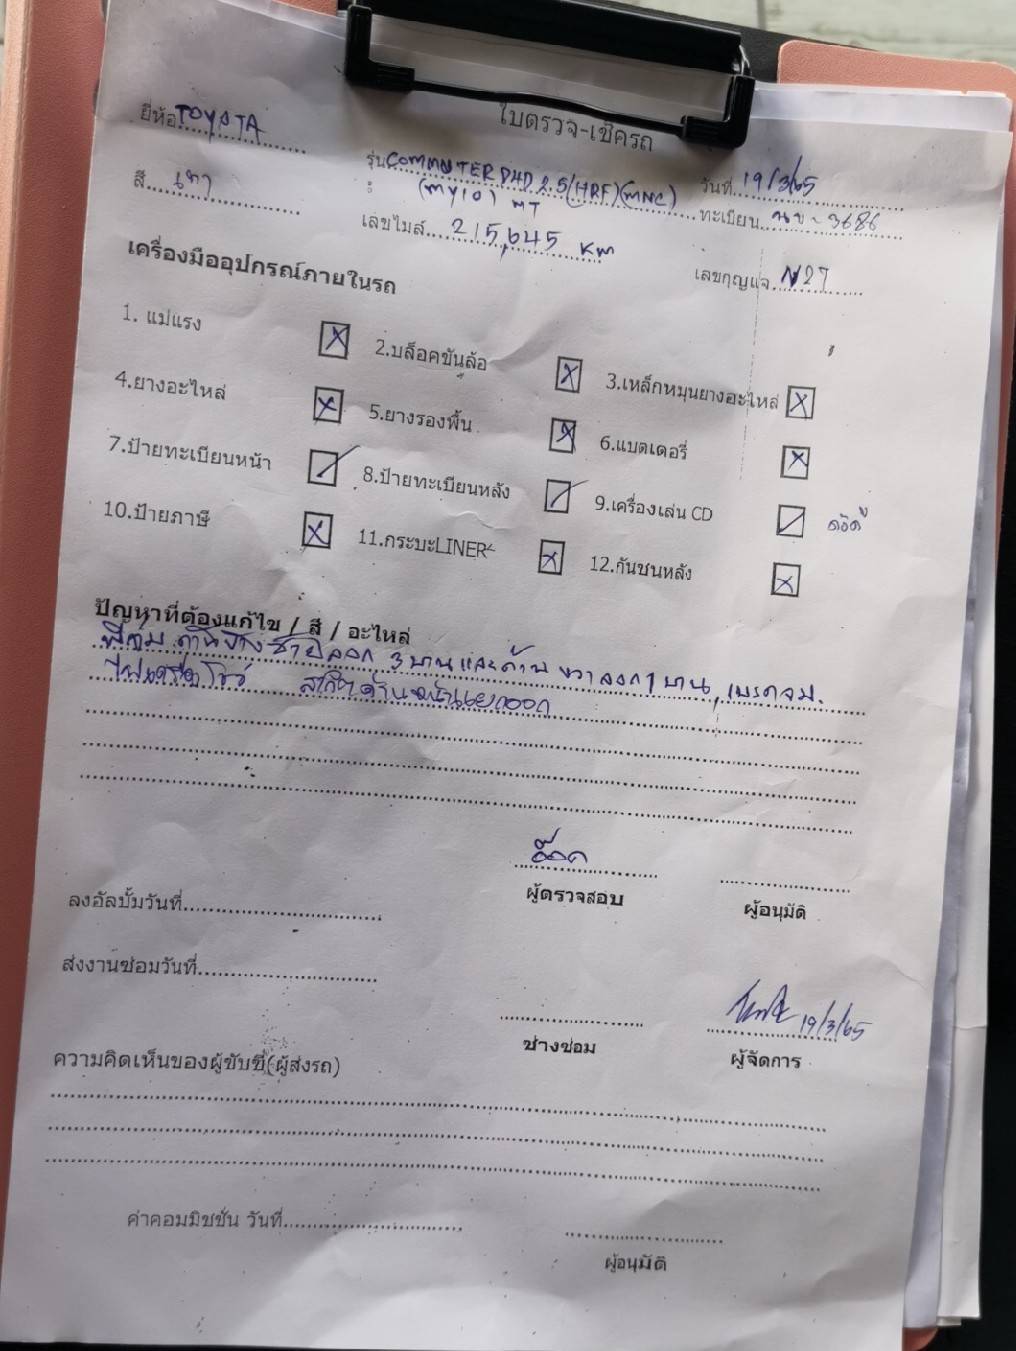 ใบตรวจ-เช็ครถ
ยี่ห้อ TOYOTA รุ่น COMMUTER D4D 2.5 (HRF) (MNC) วันที่ 19/3/65
สี เทา : (MY10) MT ทะเบียน นข-3686
เลขไมล์ 215,645 Km เลขกุญแจ N27
เครื่องมืออุปกรณ์ภายในรถ
1. แม่แรง X 2.บล็อคขันล้อ X 3.เหล็กหมุนยางอะไหล่ X
4.ยางอะไหล่ X 5.ยางรองพื้น X 6.แบตเตอรี่ X
7.ป้ายทะเบียนหน้า / 8.ป้ายทะเบียนหลัง / 9.เครื่องเล่น CD /
10.ป้ายภาษี X 11.กระบะLINER X 12.กันชนหลัง X
ปัญหาที่ต้องแก้ไข / สี / อะไหล่
ด้านข้างซ้ายลอก 3 บานและด้านขวาลอก 1 บาน, เบรคจม.
ไฟเครื่องโชว์ สเกิ๊ตด้านหน้าแยกออก
ผู้ตรวจสอบ ผู้อนุมัติ
ลงอัลบั้มวันที่
ส่งงานซ่อมวันที่
19/3/65
ช่างซ่อม ผู้จัดการ
ความคิดเห็นของผู้ขับขี่(ผู้ส่งรถ)
ค่าคอมมิชชั่น วันที่
ผู้อนุมัติ